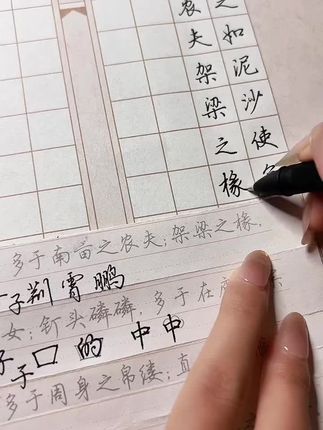 之如泥沙使
农夫架梁之椽
多于南亩之农夫；架梁之椽，
子荆霄鹏
女；钉头磷磷，多于在
子子口的中申
多于周身之帛缕；直